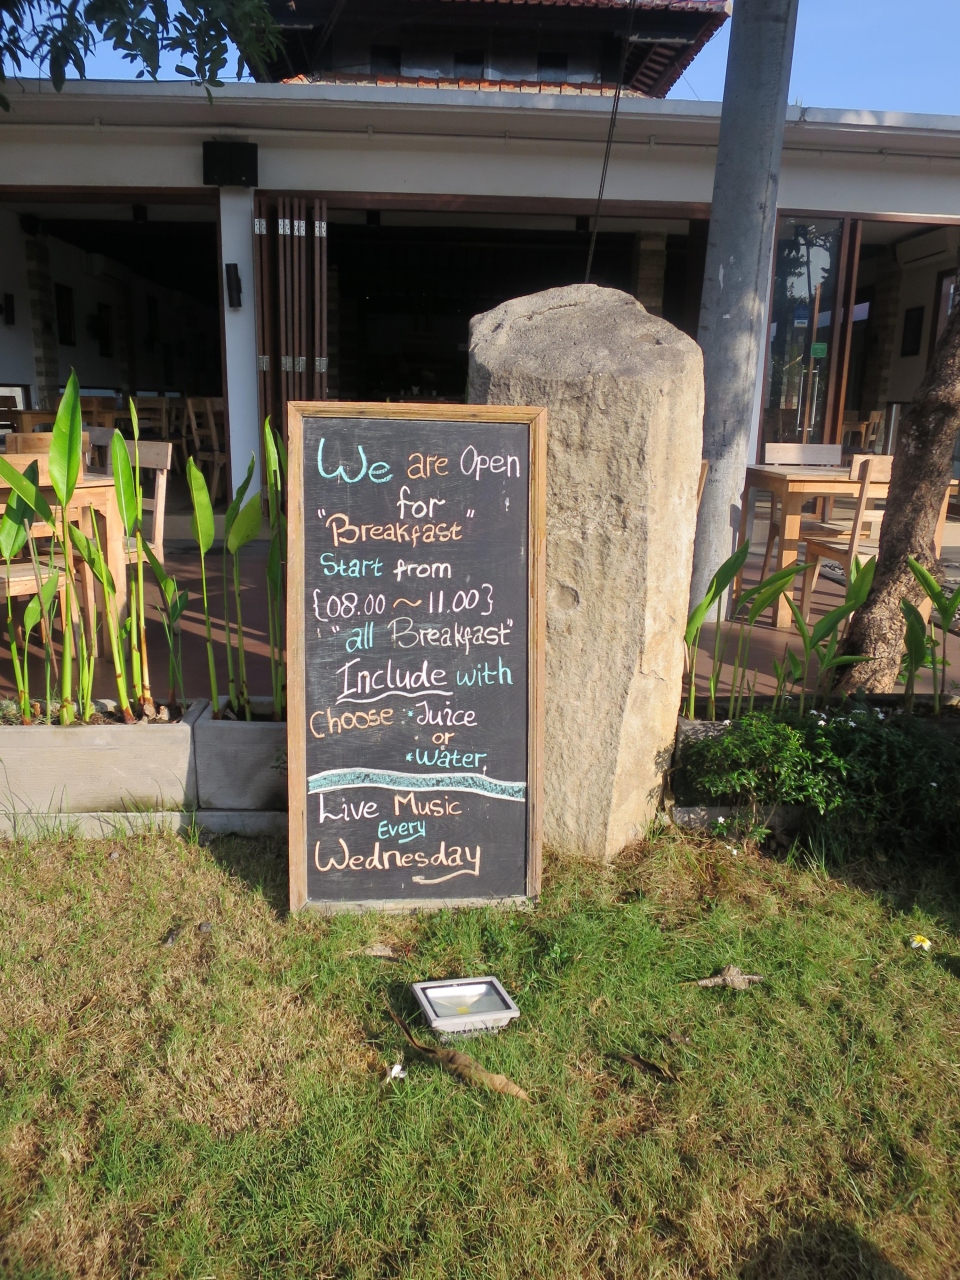 We are Open
for
"Breakfast"
Start from
{08.00 ~ 11.00}
"all Breakfast"
Include with
Choose : *Juice
or
*Water
Live Music
Every
Wednesday